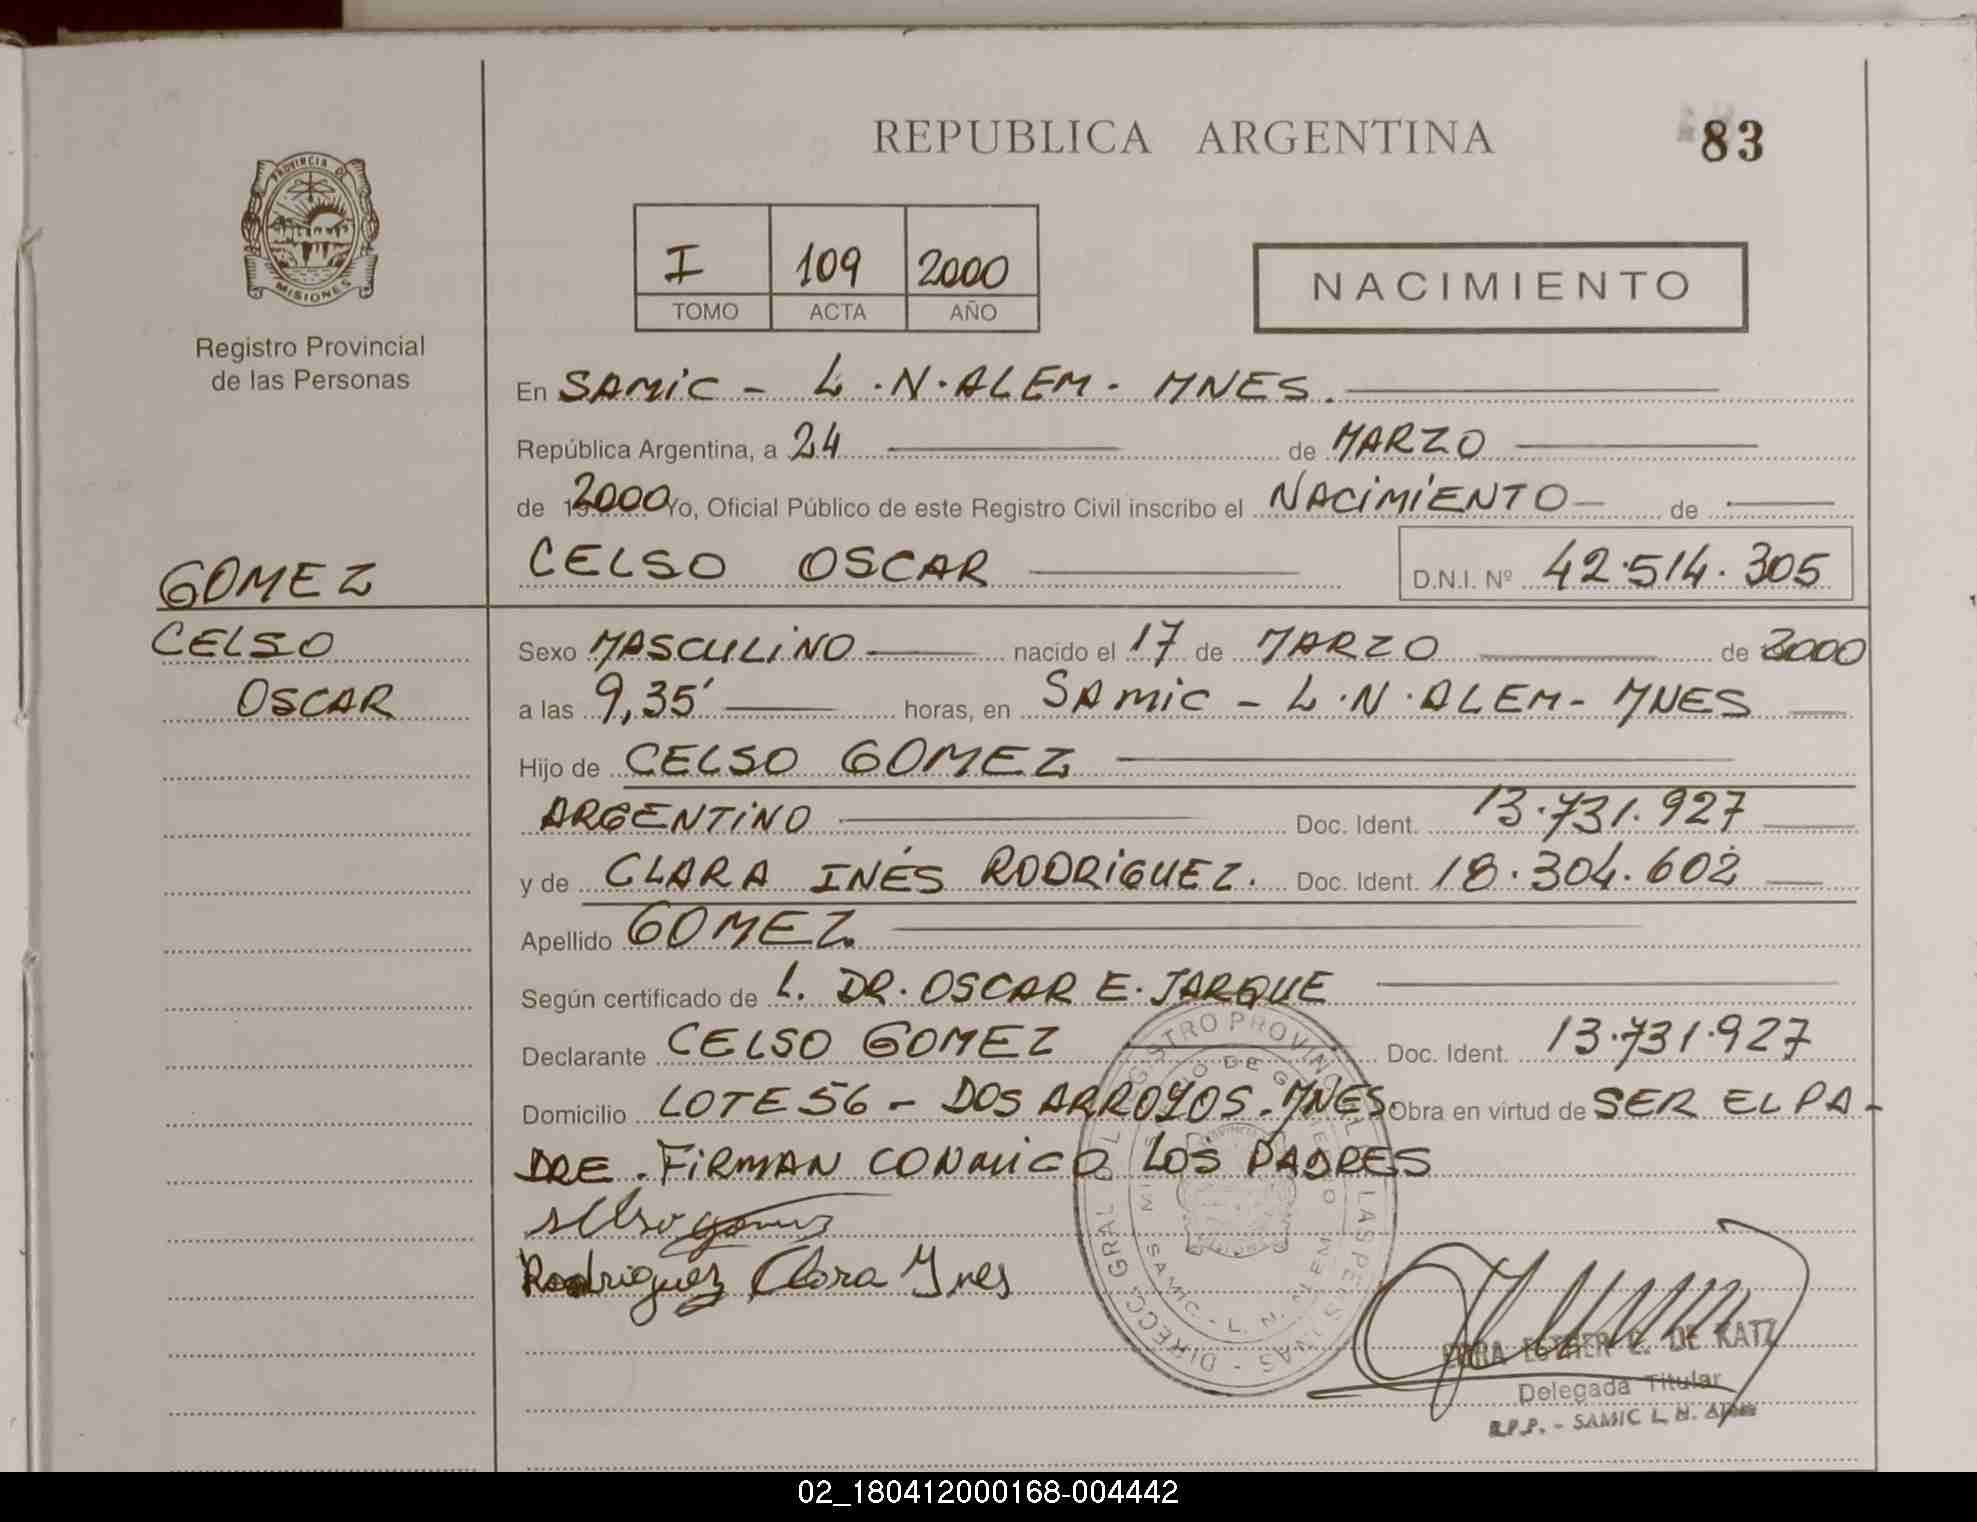 REPUBLICA ARGENTINA
83
PROVINCIA DE
MISIONES
Registro Provincial
de las Personas
I 109 2000
TOMO ACTA AÑO
NACIMIENTO
En SAMIC - L.N.ALEM - MNES.
República Argentina, a 24 de MARZO
de 2000 Yo, Oficial Público de este Registro Civil inscribo el NACIMIENTO de
CELSO OSCAR D.N.I. Nº 42.514.305
GOMEZ
CELSO
OSCAR
Sexo MASCULINO nacido el 17 de MARZO de 2000
a las 9,35' horas, en SAMIC - L.N.ALEM - MNES
Hijo de CELSO GOMEZ
ARGENTINO Doc. Ident. 13.731.927
y de CLARA INÉS RODRIGUEZ. Doc. Ident. 18.304.602
Apellido GOMEZ.
Según certificado de L. DR. OSCAR E. JARQUE
Declarante CELSO GOMEZ Doc. Ident. 13.731.927
Domicilio LOTE 56 - DOS ARROYOS - MNES. Obra en virtud de SER EL PA-
DRE. FIRMAN CONMIGO LOS PADRES
Rodriguez Clara Ynes
ESTHER E. DE KATZ
Delegada Titular
R.P.P. - SAMIC L. N. Alem
02_180412000168-004442